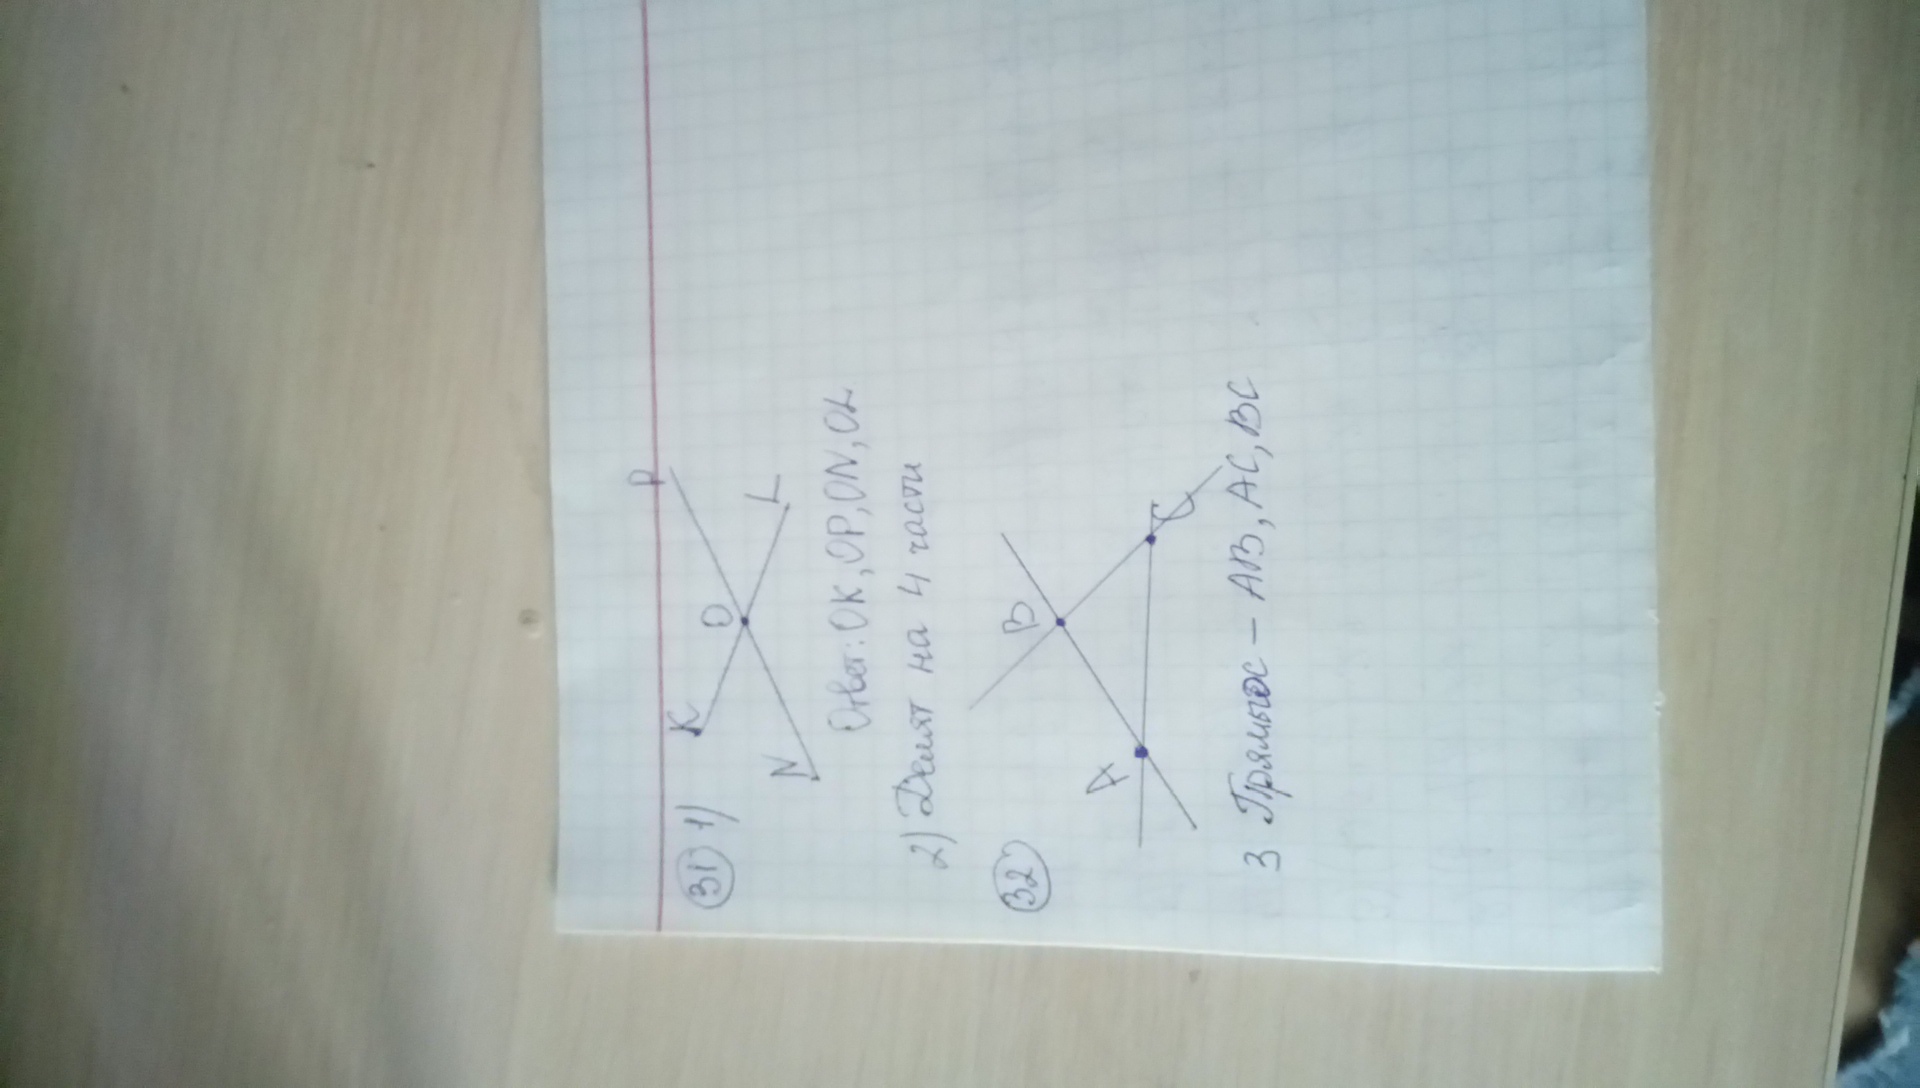 31 1)
P
K
O
L
N
Ответ: OK, OP, ON, OL
2) Делят на 4 части
32
B
A
C
3 Прямые - AB, AC, BC